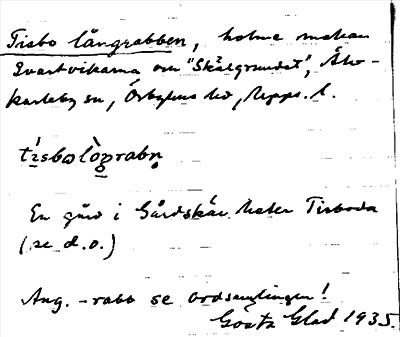 Tisbo långrabben, holme mellan
Svartvikarna och "Skälgrundet", Älv-
karleby sn, Örbyhus hd, Upps. l.
tisbolòŋrabn̥
En gård i Gårdskär heter Tisboda
(se d.o.)
Ang. -rabb se ordsamlingen!
Gösta Glad 1935.